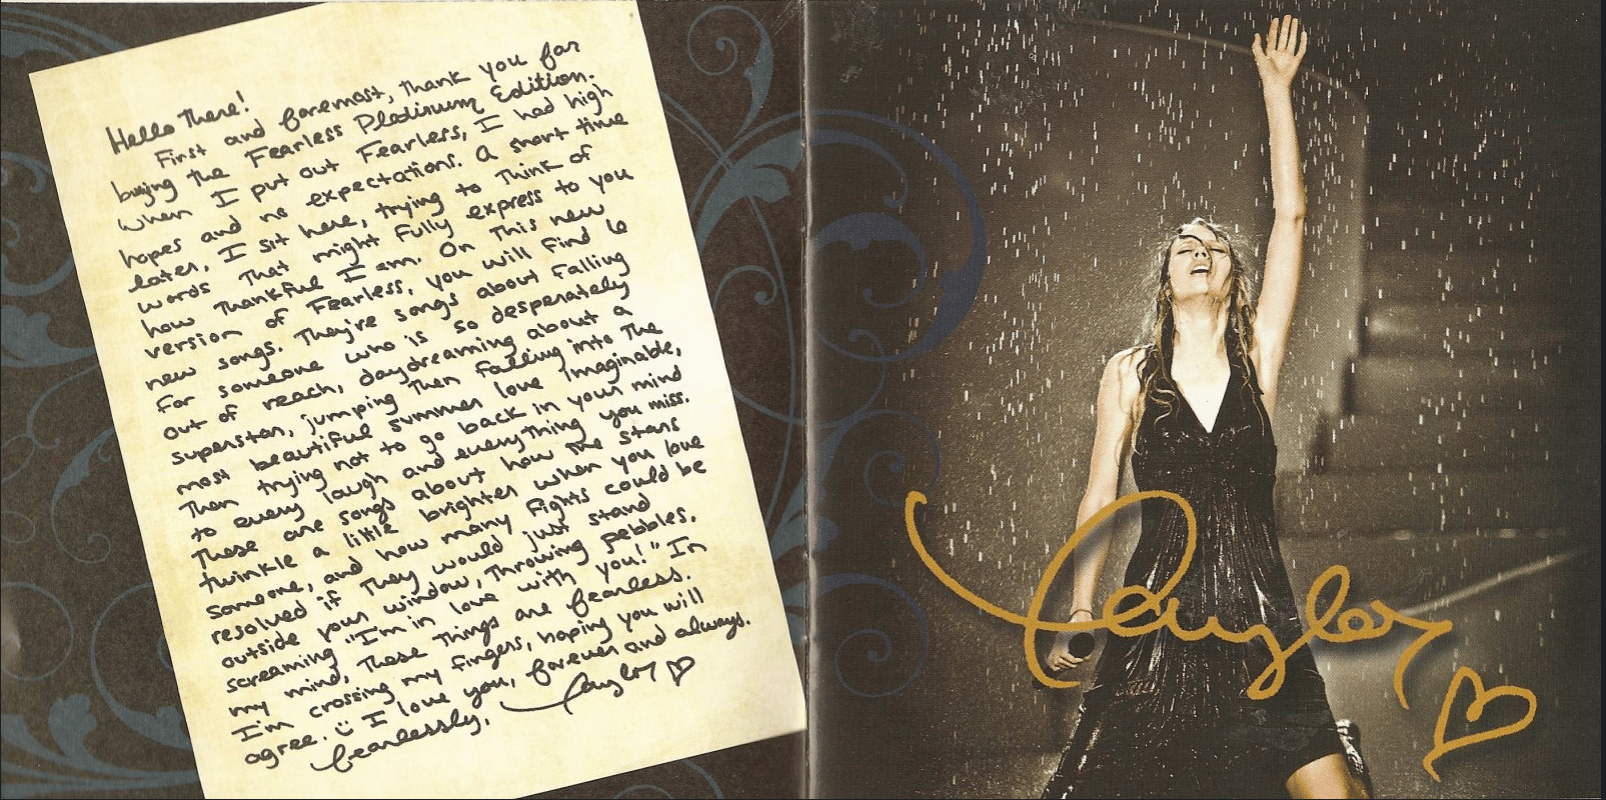 Hello There!
First and foremost, thank you for
buying the Fearless Platinum Edition.
When I put out Fearless, I had high
hopes and no expectations. A short time
later, I sit here, trying to think of
words that might fully express to you
how thankful I am. On this new
version of Fearless, you will find 6
new songs. They're songs about falling
for someone who is so desperately
out of reach, daydreaming about a
superstar, jumping then falling into the
most beautiful summer love imaginable,
Then trying not to go back in your mind
to every laugh and everything you miss.
These are songs about how the stars
twinkle a little brighter when you love
someone, and how many fights could be
resolved if they would just stand
outside your window, throwing pebbles,
screaming "I'm in love with you!" In
my mind, these things are fearless.
I'm crossing my fingers, hoping you will
agree. I love you, forever and always.
fearlessly,
Taylor
Taylor